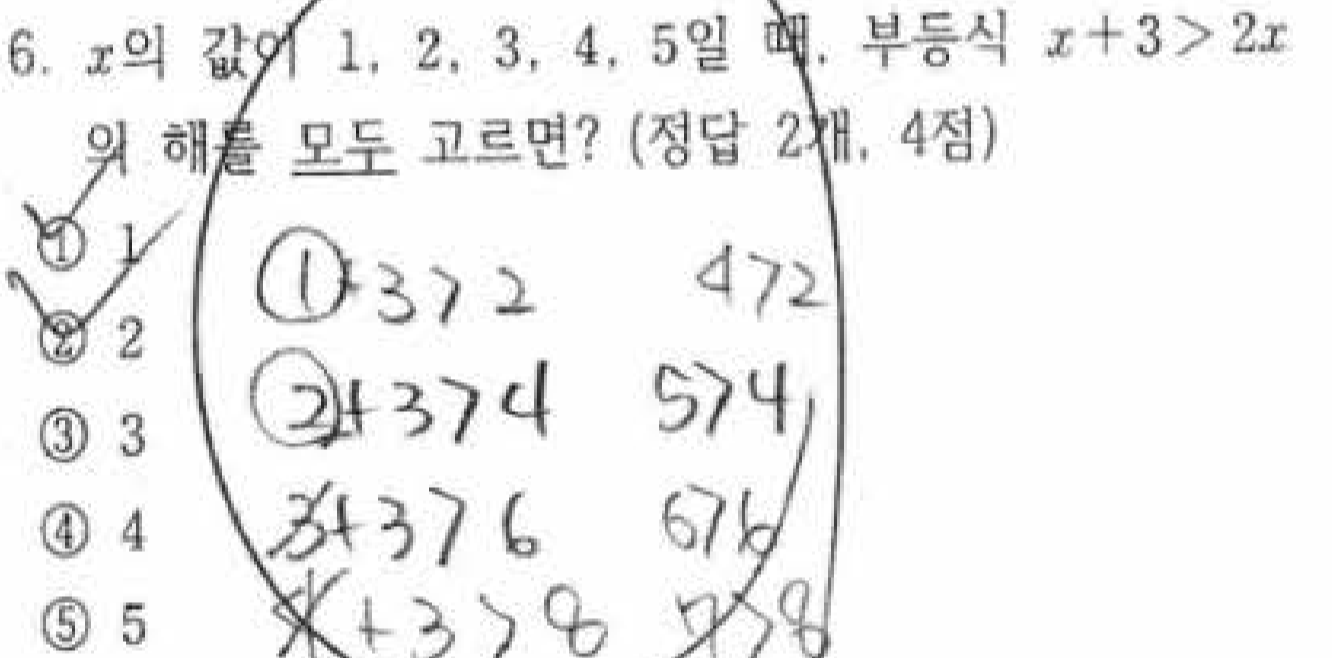 6. x의 값이 1, 2, 3, 4, 5일 때, 부등식 x+3>2x
의 해를 모두 고르면? (정답 2개, 4점)
① 1
1+3>2 4>2
② 2
2+3>4 5>4
③ 3
3+3>6 6>6
④ 4
4+3>8 7>8
⑤ 5